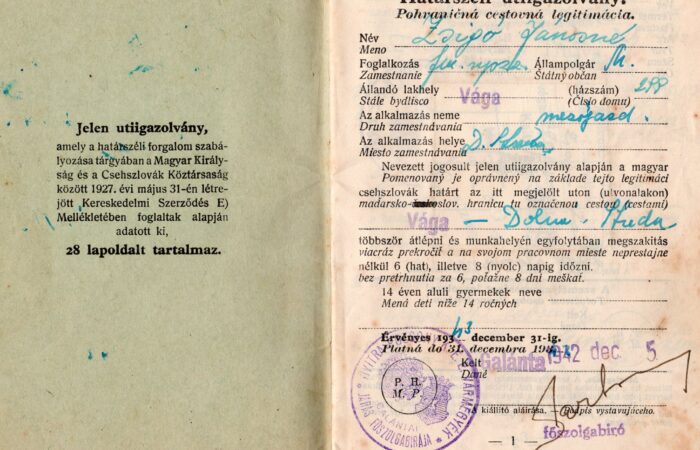 Jelen utiigazolvány,
amely a határszéli forgalom szabá-
lyozása tárgyában a Magyar Király-
ság és a Csehszlovák Köztársaság
között 1927. évi május 31-én létre-
jött Kereskedelmi Szerződés E)
Mellékletében foglaltak alapján
adatott ki,
28 lapoldalt tartalmaz.
Határszéli utiigazolvány.
Pohraničná cestovná legitimácia.
Név Zsigó Jánosné
Meno
Foglalkozás Állampolgár M.
Zamestnanie Štátný občan
Állandó lakhely Vága (házszám) 298
Stále bydlisco (Čisjo domu)
Az alkalmazás neme mezőgazd.
Druh zamestnávania
Az alkalmazás helye D.
Miesto zamestnávania
Nevezett jogosult jelen utiigazolvány alapján a magyar
Pomenovaný je oprávnený na základe tejto legitimáci
csehszlovák határt az itt megjelölt uton (utvonalakon)
madarsko- slov. hranicu tu označenou cestou (cestami)
Vága — Dolna-Studa
többször átlépni és munkahelyén egyfolytában megszakitás
viacráz prekročit a na svojom pracovnom mieste neprestajne
nélkül 6 (hat), illetve 8 (nyolc) napig időzni.
bez pretrhnutia za 6, poťažne 8 dní meškat.
14 éven aluli gyermekek neve
Mená deti niže 14 ročných
Érvényes 193 43 december 31-ig.
Platná do 31. decembra 194
Galánta 1942 dec. 5
Kelt
Dané
P. H.
M. P.
GALÁNTAI
JÁRÁS FŐSZOLGABIRÁJA
A kiállító aláirása. — Podpis vystavujúceho.
főszolgabiró
— 1 —